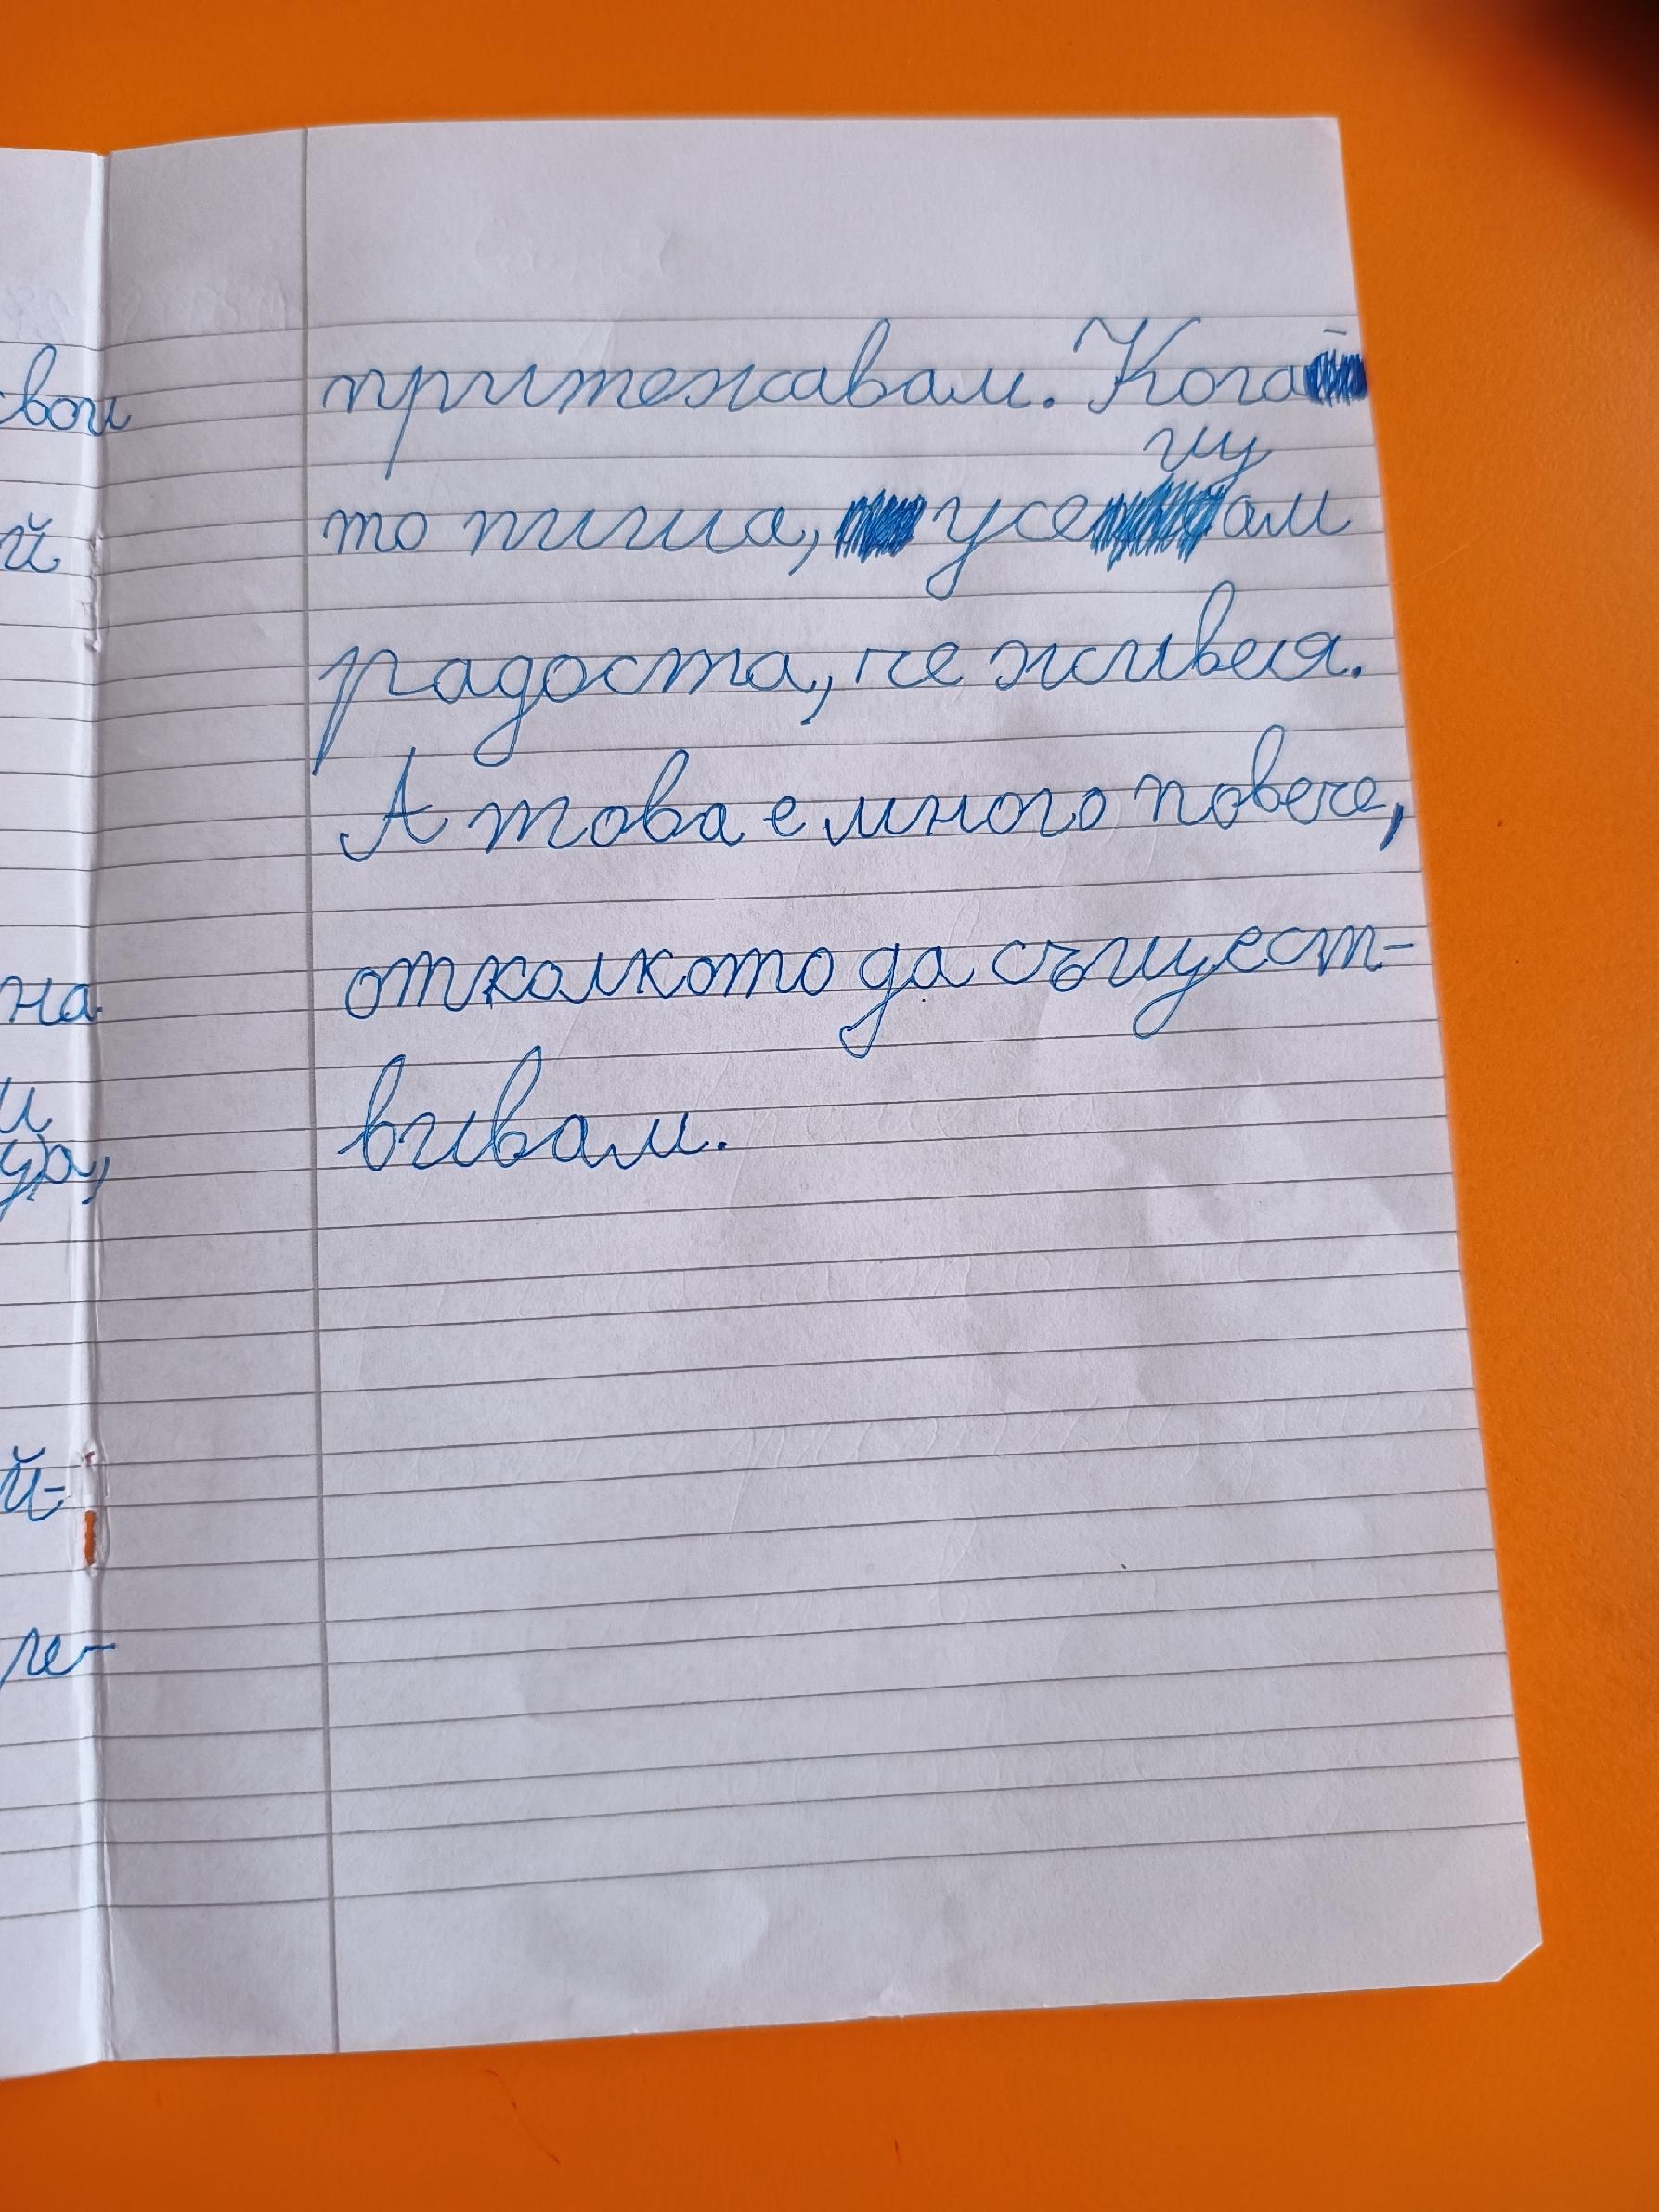 вои
й
на
и
й-
че-
притежавам. Кога
то пиша, усещам
радоста, че живея.
А това е много повече,
отколкото да същест-
вивам.